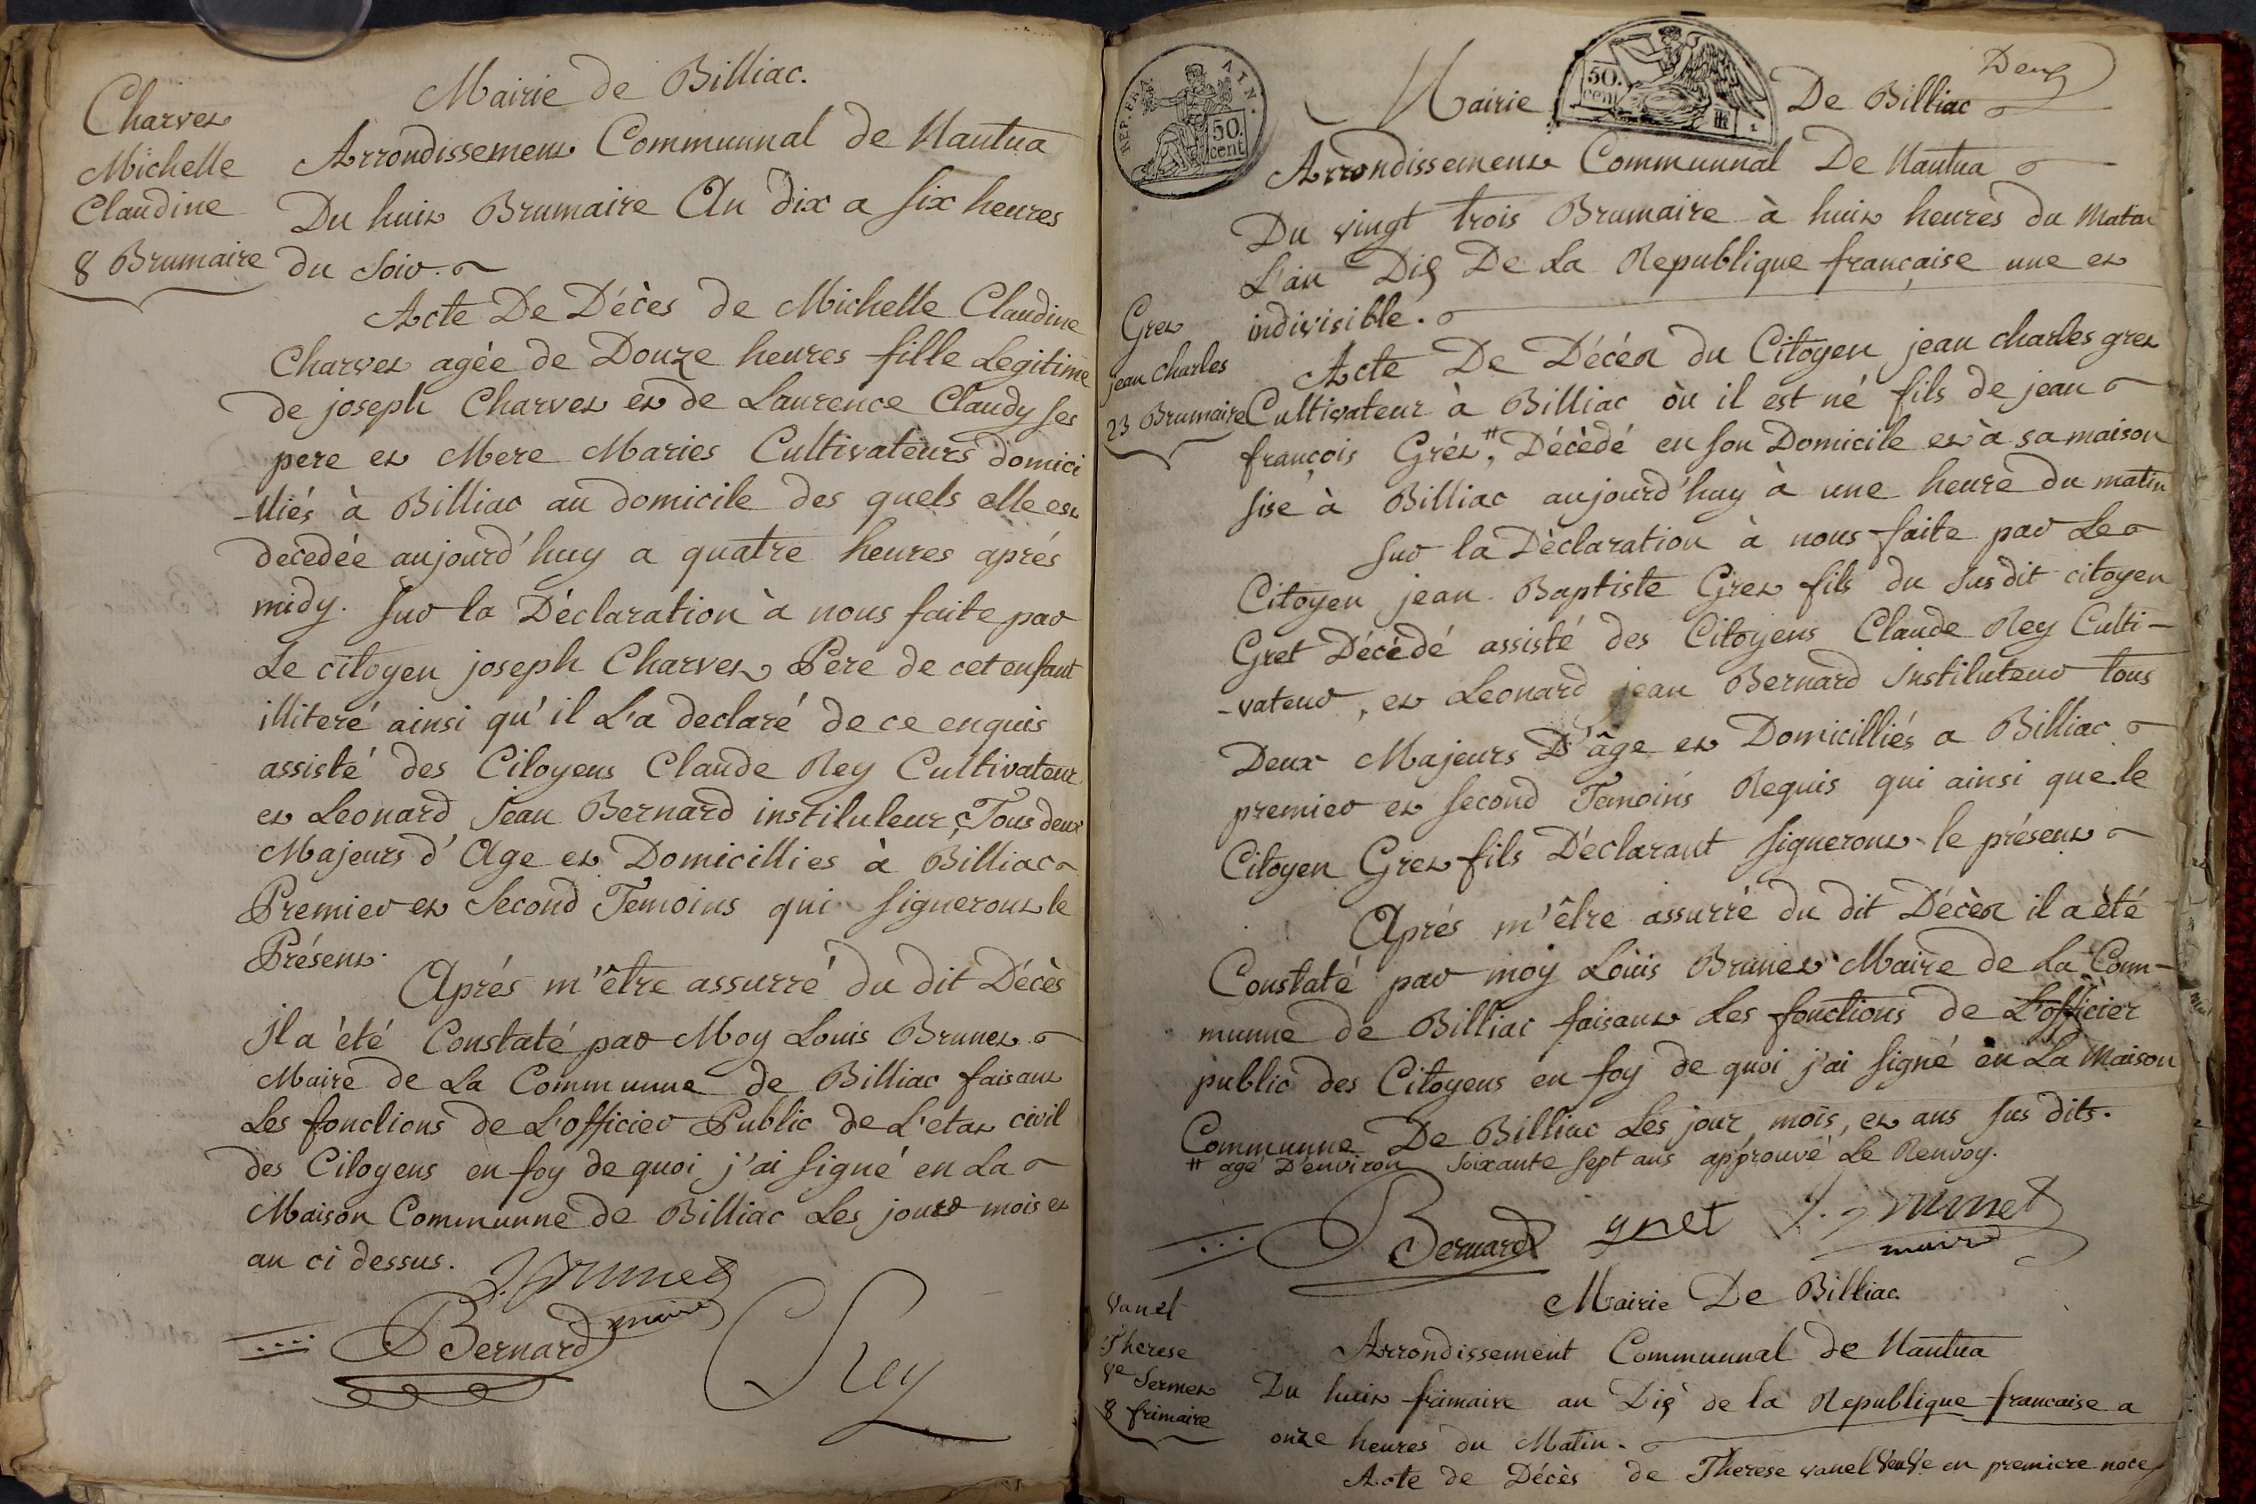 Mairie de Billiac.
Charvet
Michelle
Claudine
8 Brumaire
Arrondissement Communnal de Nantua
Du huit Brumaire An dix a six heures
du soir.
Acte De Décès de Michelle Claudine
Charvet agée de Douze heures fille Legitime
de joseph Charvet et de Laurence Claudy ses
pere et Mere Maries Cultivateurs domici
-lliés à Billiac au domicile des quels elle est
decedée aujourd'huy a quatre heures aprés
midy. sur la Déclaration à nous faite par
Le citoyen joseph Charvet Pere de cet enfant
illiteré ainsi qu'il L'a declaré de ce enquis
assisté des Citoyens Claude Rey Cultivateur
et Leonard Jean Bernard instituteur, Tous deux
Majeurs d'Age et Domicillies à Billiac
Premier et Second Temoins qui signeront le
Présent.
Aprés m'être assurré du dit Décès
il a été Constaté par Moy Louis Brunet
Maire de La Communne de Billiac faisant
Les fonctions de L'officier Public de L'etat civil
des Citoyens en foy de quoi j'ai signé en La
Maison Communne de Billiac Les jour mois et
an ci dessus.
Brunet
maire
Bernard
Rey
REP. FRA.
50.
cent
50.
cent
Deux
Mairie De Billiac
Arrondissement Communnal De Nantua
Du vingt trois Brumaire à huit heures du Matin
L'an Dix De La Republique française une et
indivisible.
Gret
jean Charles
23 Brumaire
Acte De Décés du Citoyen jean charles gret
Cultivateur à Billiac où il est né fils de jean
françois Grét,# Décèdé en son Domicile et à sa maison
sise à Billiac aujourd'huy à une heure du matin
sur la Dèclaration à nous faite par Le
Citoyen jean Baptiste Gret fils du susdit citoyen
Gret Décèdé assisté des Citoyens Claude Rey Culti-
-vateur, et Leonard jean Bernard instituteur tous
Deux Majeurs D'âge et Domicilliés a Billiac
premier et second Temoins Requis qui ainsi que le
Citoyen Gret fils Déclarant signeront le présent
Aprés m'être assurré du dit Décès il a été
Constaté par moy Louis Brunet Maire de La Com-
munne de Billiac faisant Les fonctions de L'officier
public des Citoyens en foy de quoi j'ai signé en La Maison
Communne De Billiac Les jour, mois, et ans sus dits.
# agé D'environ soixante sept ans approuvé Le Renvoy.
Bernard gret Brunet
maire
Mairie De Billiac
Vanel
Therese
Ve Sermet
8 frimaire
Arrondissement Communnal de Nantua
Du huit frimaire an Dix de la Republique francaise a
onze heures du Matin.
Acte de Décès de Therese vanel veuve en premiere noce